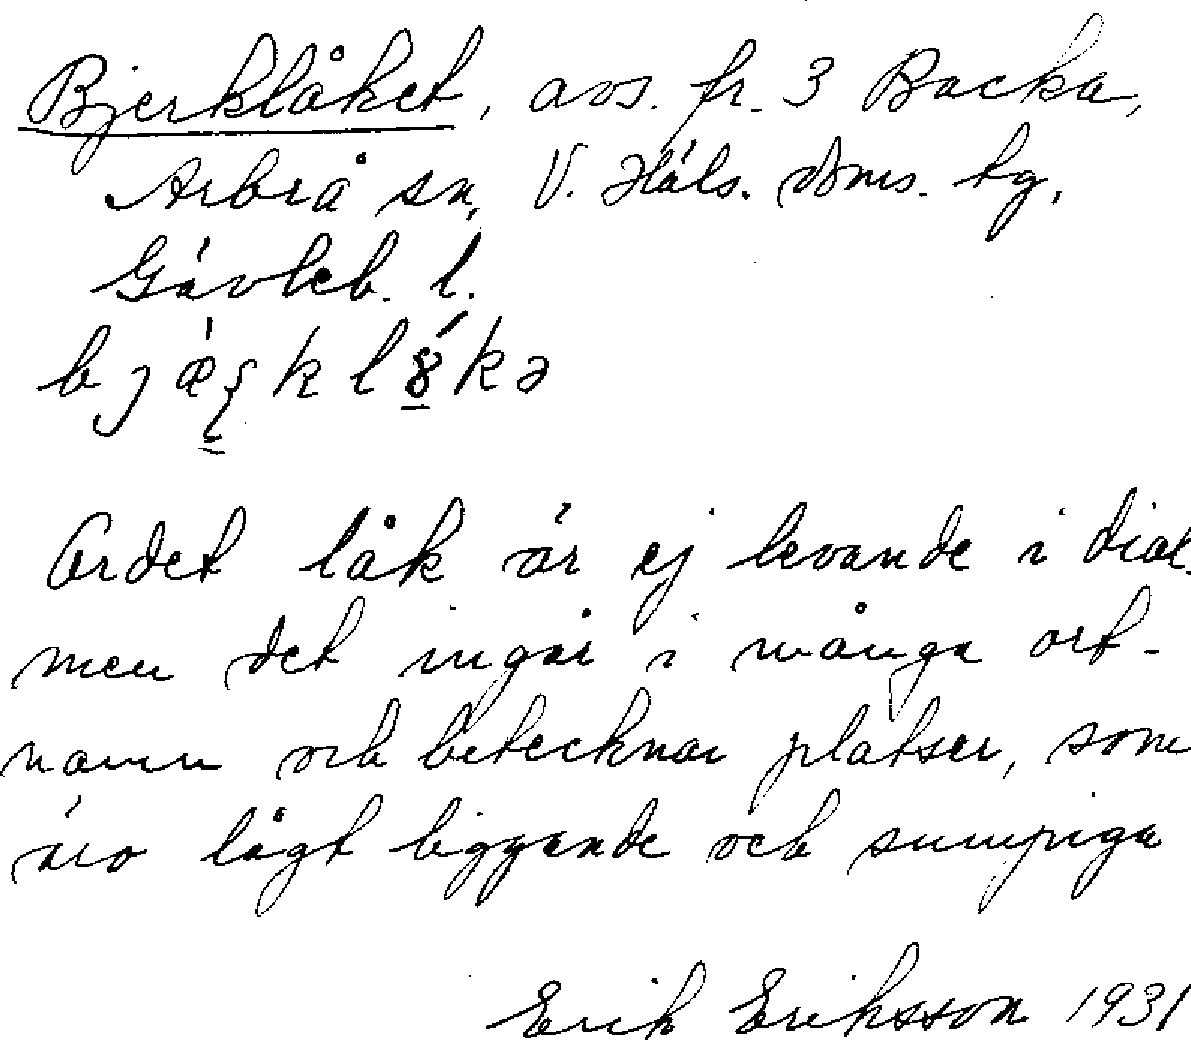 Bjerklåket, avs. fr. 3 Backa,
Arbrå sn, V. Häls. doms. tg,
Gävleb. l.
Ordet låk är ej levande i dial.
men det ingår i många ort-
namn och betecknar platser, som
äro lågt liggande och sumpiga
Erik Eriksson 1931